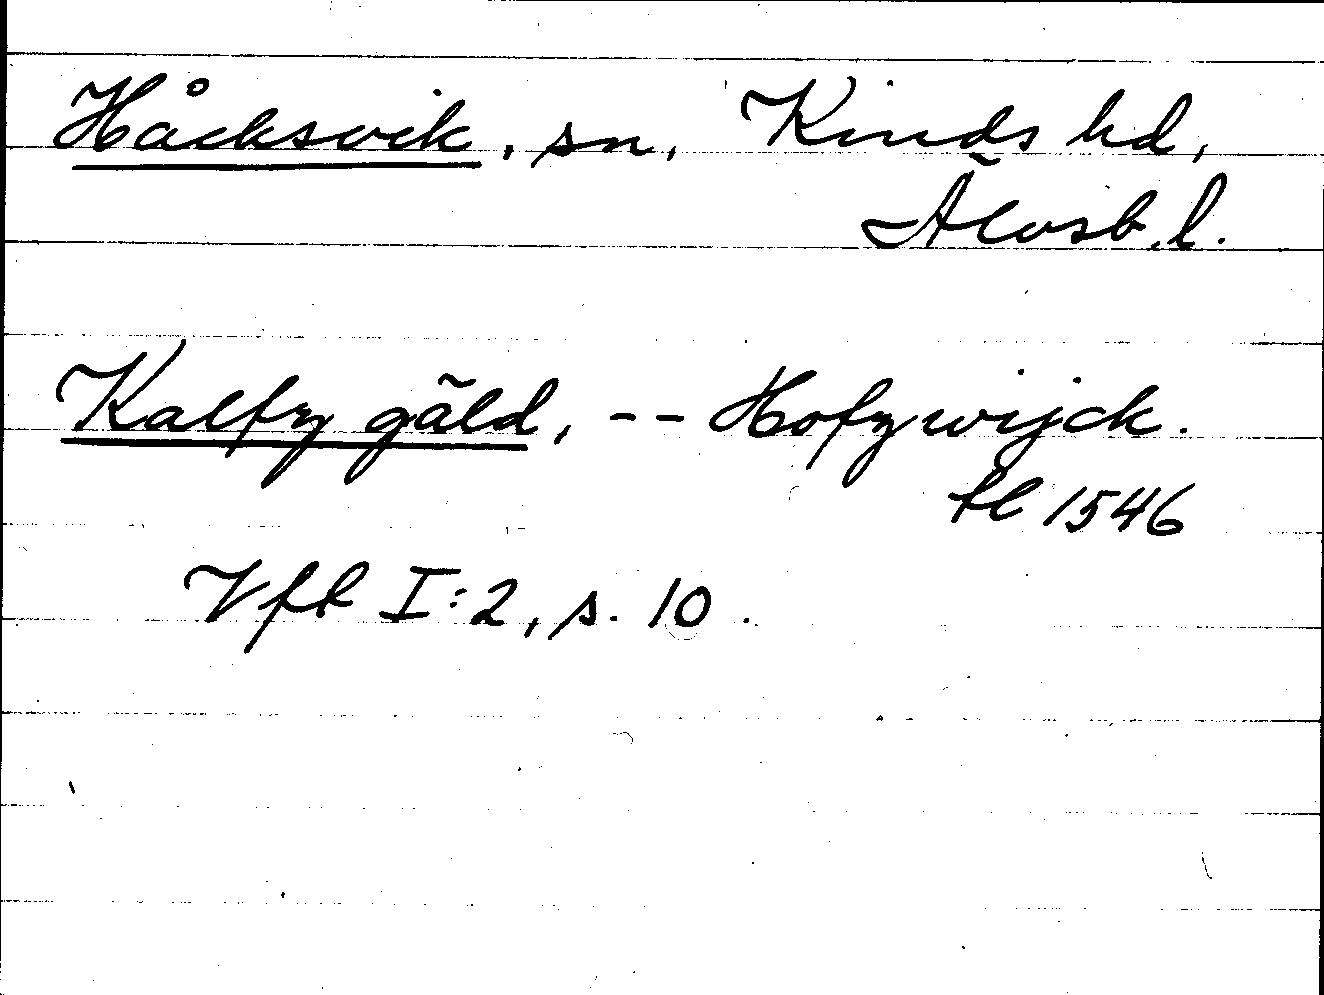 Håcksvik, sn, Kinds hd,
Älvsb. l.
Kalfz gäld, -- Hofzwijck.
fl 1546
Vfl I:2, s. 10.